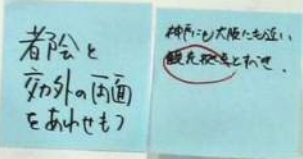 都会と
郊外の両面
をあわせもつ
神戸にも大阪にも近い
観光拠点とすべき.